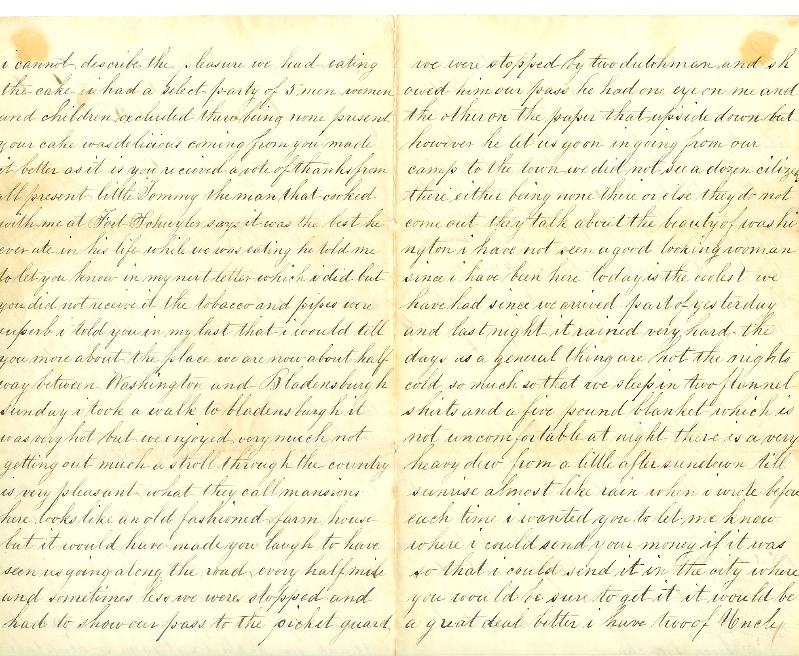 i cannot describe the pleasure we had eating
the cake i had a select party of 5 men women
and children excluded there being none present
your cake was delicious coming from you made
it better as it is you received a vote of thanks from
all present little Tommy the man that cooked
with me at Fort Schuyler says it was the best he
ever ate in his life while we was eating he told me
to let you know in my next letter which i did but
you did not receive it the tobacco and pipes were
superb i told you in my last that i would tell
you more about the place we are now about half
way between Washington and Bladensburgh
sunday i took a walk to bladensburgh it
was very hot but we enjoyed very much not
getting out much a stroll through the country
is very pleasant what they call mansions
here looks like an old fashioned farm house
but it would have made you laugh to have
seen us going along the road every half mile
and sometimes less we were stopped and
had to show our pass to the picket guard
we were stopped by two dutchman and sh
owed him our pass he had one eye on me and
the other on the paper that upside down but
however he let us go on in going from our
camp to the town we did not see a dozen citizens
there either being none there or else they do not
come out they talk about the beauty of washi
ngton i have not seen a good looking woman
since i have been here today is the coolest we
have had since we arrived part of yesterday
and last night it rained very hard the
days as a general thing are hot the nights
cold so much so that we sleep in two flannel
shirts and a five pound blanket which is
not uncomfortable at night there is a very
heavy dew from a little after sundown till
sunrise almost like rain when i wrote before
each time i wanted you to let me know
where i could send your money if it was
so that i could send it in the city where
you would be sure to get it it would be
a great deal better i have two of Uncle